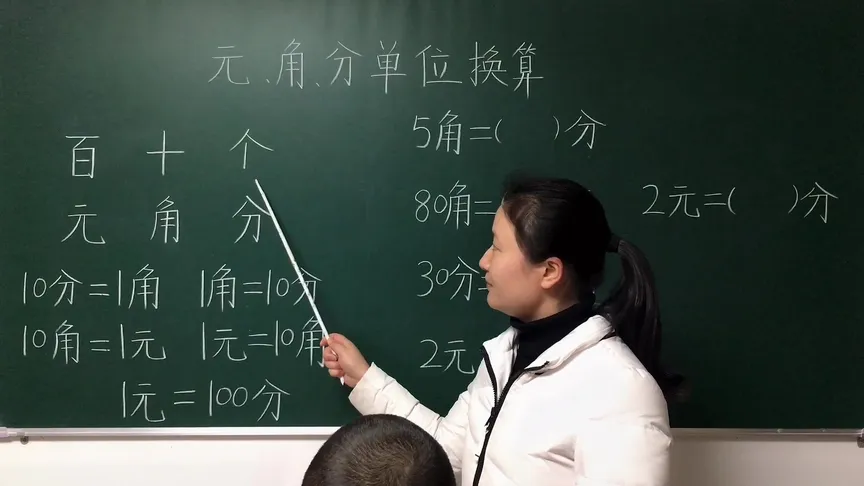 元、角、分单位换算
百 十 个
元 角 分
10分=1角 1角=10分
10角=1元 1元=10角
1元=100分
5角=( )分
80角=
30分=
2元
2元=( )分